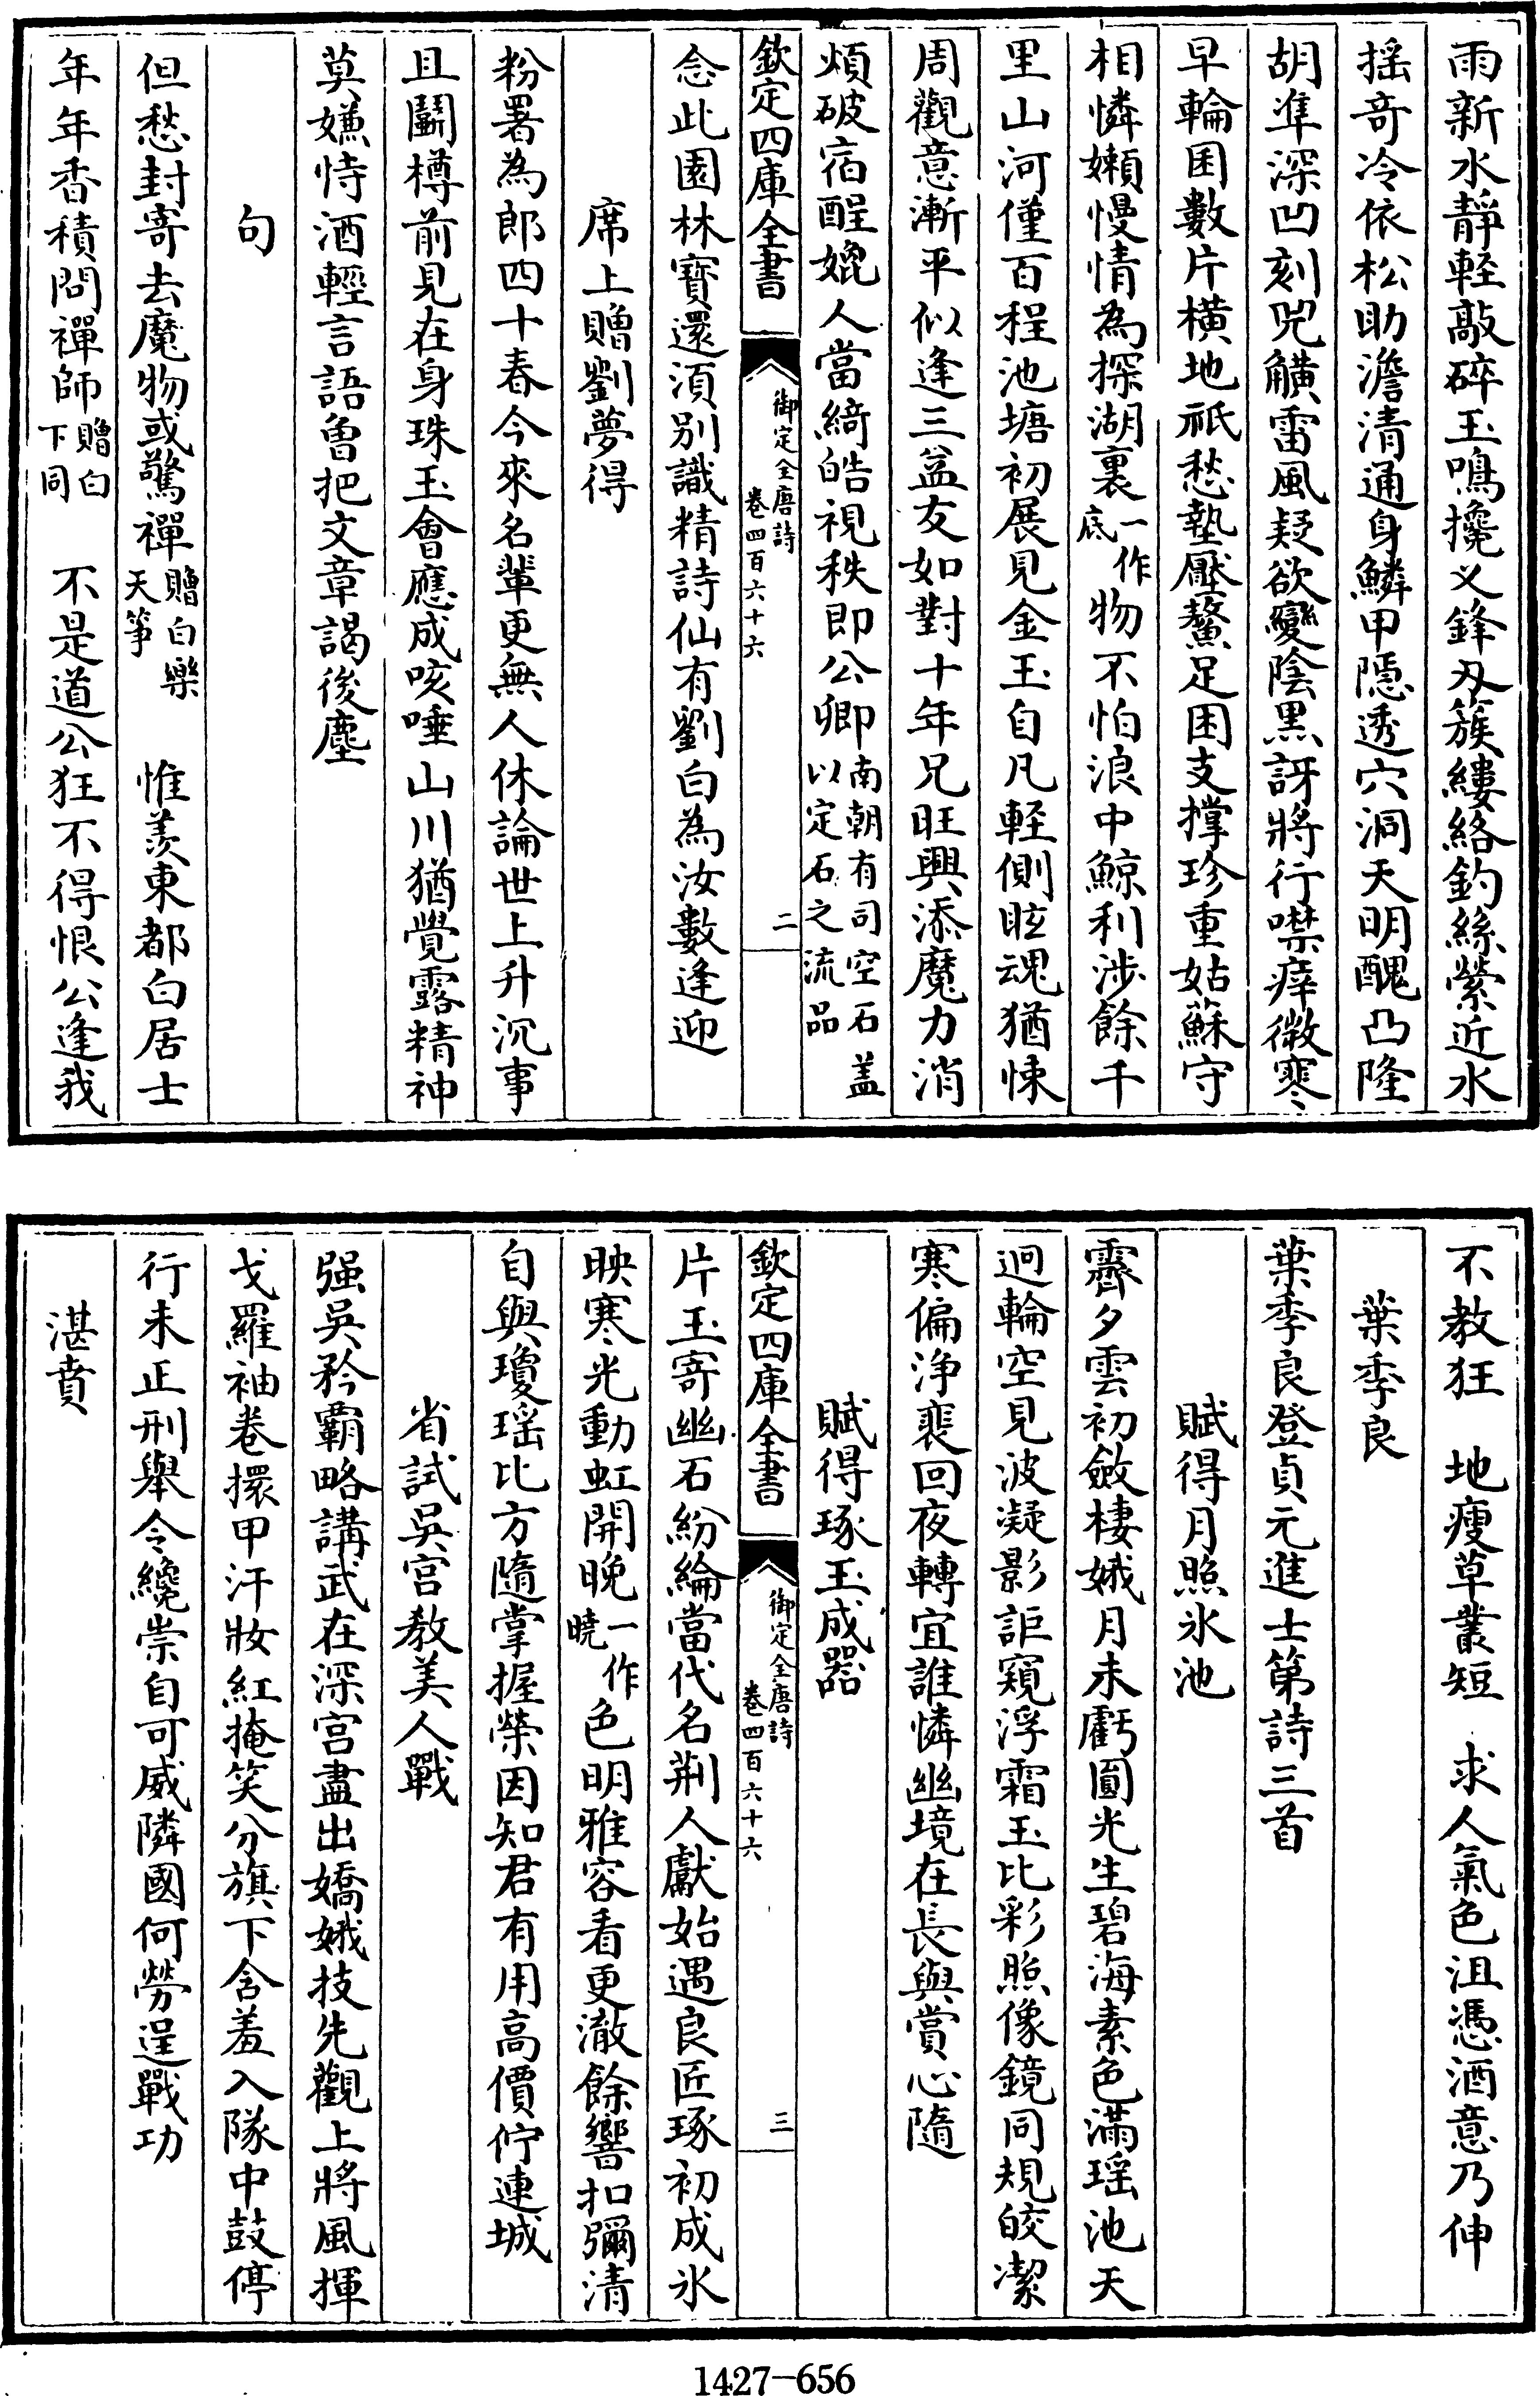 雨新水靜輕敲碎玉鳴攙义鋒刃簇縷絡釣絲縈近水
揺奇冷依松助澹清通身鱗甲隱透穴洞天明醜凸隆
胡準深凹刻兕觵雷風疑欲變陰黒訝將行噤瘁微寒
早輪囷數片橫地祇愁墊壓鰲足困支撑珍重姑蘇守
相憐嬾慢情為探湖裏一作底物不怕浪中鯨利涉餘千
里山河僅百程池塘初展見金玉自凡輕側眩魂猶悚
周觀意漸平似逢三益友如對十年兄旺興添魔力消
煩破宿酲媲人當綺皓視秩即公卿南朝有司空石蓋以定石之流品
欽定四庫全書
御定全唐詩
卷四百六十六
二
念此園林寳還湏别識精詩仙有劉白為汝數逢迎
席上贈劉夢得
粉署為郎四十春今來名輩更無人休論世上升沉事
且鬬樽前見在身珠玉會應成咳唾山川猶覺露精神
莫嫌恃酒輕言語曽把文章謁後塵
句
但愁封寄去魔物或驚禪贈白樂天箏　惟羡東都白居士
年年香積問禪師贈白下同　不是道公狂不得恨公逢我
不教狂　地瘦草叢短　求人氣色沮憑酒意乃伸
葉季良
葉季良登貞元進士第詩三首
賦得月照氷池
霽夕雲初斂棲娥月未虧圎光生碧海素色滿瑶池天
迥輪空見波凝影詎窺浮霜玉比彩照像鏡同規皎潔
寒偏淨裴回夜轉宜誰憐幽境在長與賞心隨
賦得琢玉成器
欽定四庫全書
御定全唐詩
卷四百六十六
三
片玉寄幽石紛綸當代名荆人獻始遇良匠琢初成氷
映寒光動虹開晚一作曉色明雅容看更澈餘響扣彌清
自與瓊瑶比方隨掌握榮因知君有用高價佇連城
省試吳宫教美人戰
强吳矜覇略講武在深宫盡出嬌娥技先觀上將風揮
戈羅袖卷擐甲汗妝紅掩笑分旗下含羞入隊中鼓停
行未正刑舉令纔崇自可威隣國何勞逞戰功
湛賁
1427-656